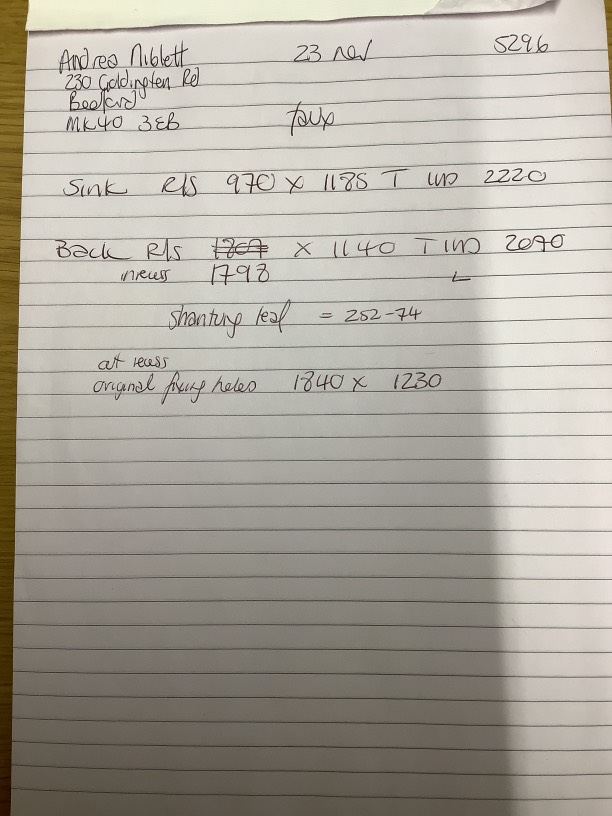 Andrea Niblett 23 nov 5296
230 Goldington Rd
Bedford
MK40 3EB faux
Sink R/S 970 x 1185 T UD 2220
Back R/S 1807 x 1140 T UD 2090
in recess 1798 L
Shantung leaf = 252-74
at recess
original fixing holes 1840 x 1230